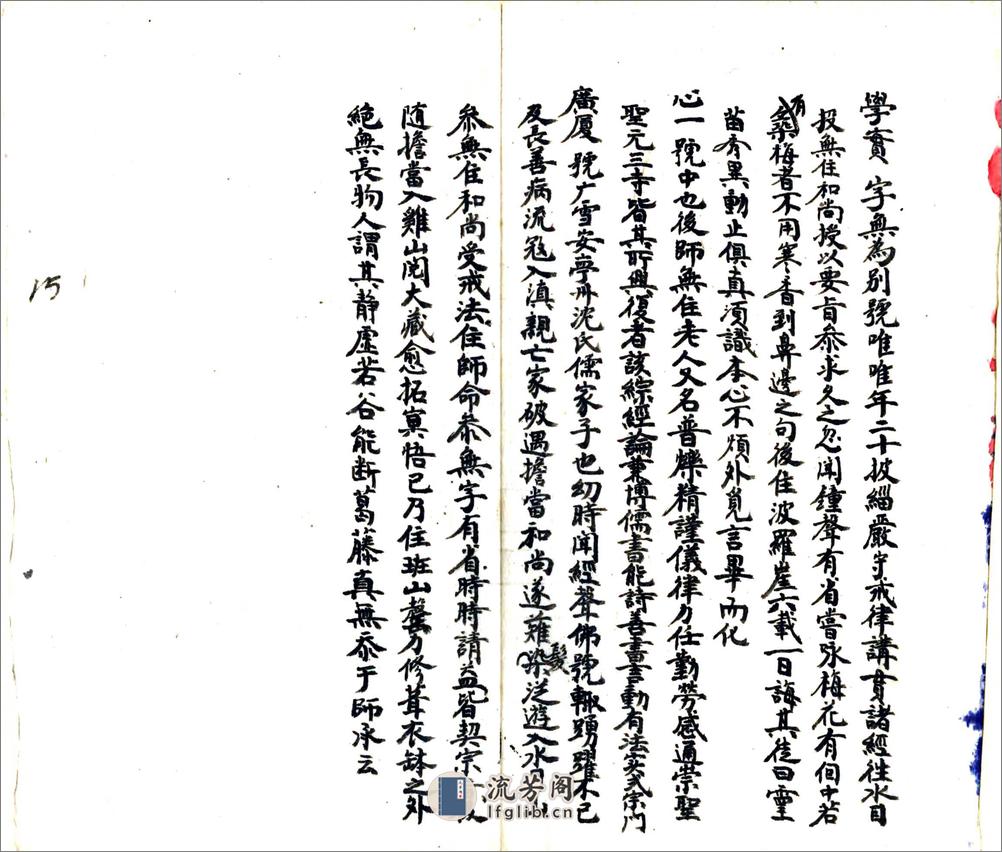 學實 字無為別號唯唯年二十披緇嚴守戒律講貫諸經往水目
投無住和尚授以要旨叅求久之忽聞鐘聲有省嘗咏梅花有個中若
有桑梅者不用寒香到鼻邊之句後住波羅崖六載一日誨其徒曰靈
苗秀異動止俱真須識本心不煩外覓言畢而化
心一 號中也後師無住老人又名普爍精謹儀律力任勤勞感通崇聖
聖元三寺皆其所興復者該綜經論兼博儒書能詩善畫言動有法實式宗門
廣厦 號广雪安寧州沈氏儒家子也幼時聞經聲佛號輙踴躍不已
及長善病流寇入滇親亡家破遇擔當和尚遂薙髮染泛遊入水
叅無住和尚受戒法住師命叅無字有省時時請益皆契宗
随擔當入雞山閱大藏愈拓寘悟已乃住班山罄力修葺衣缽之外
絕無長物人謂其静虛若谷能斷葛藤真無忝于師承云
15
流芳阁
lfglib.cn